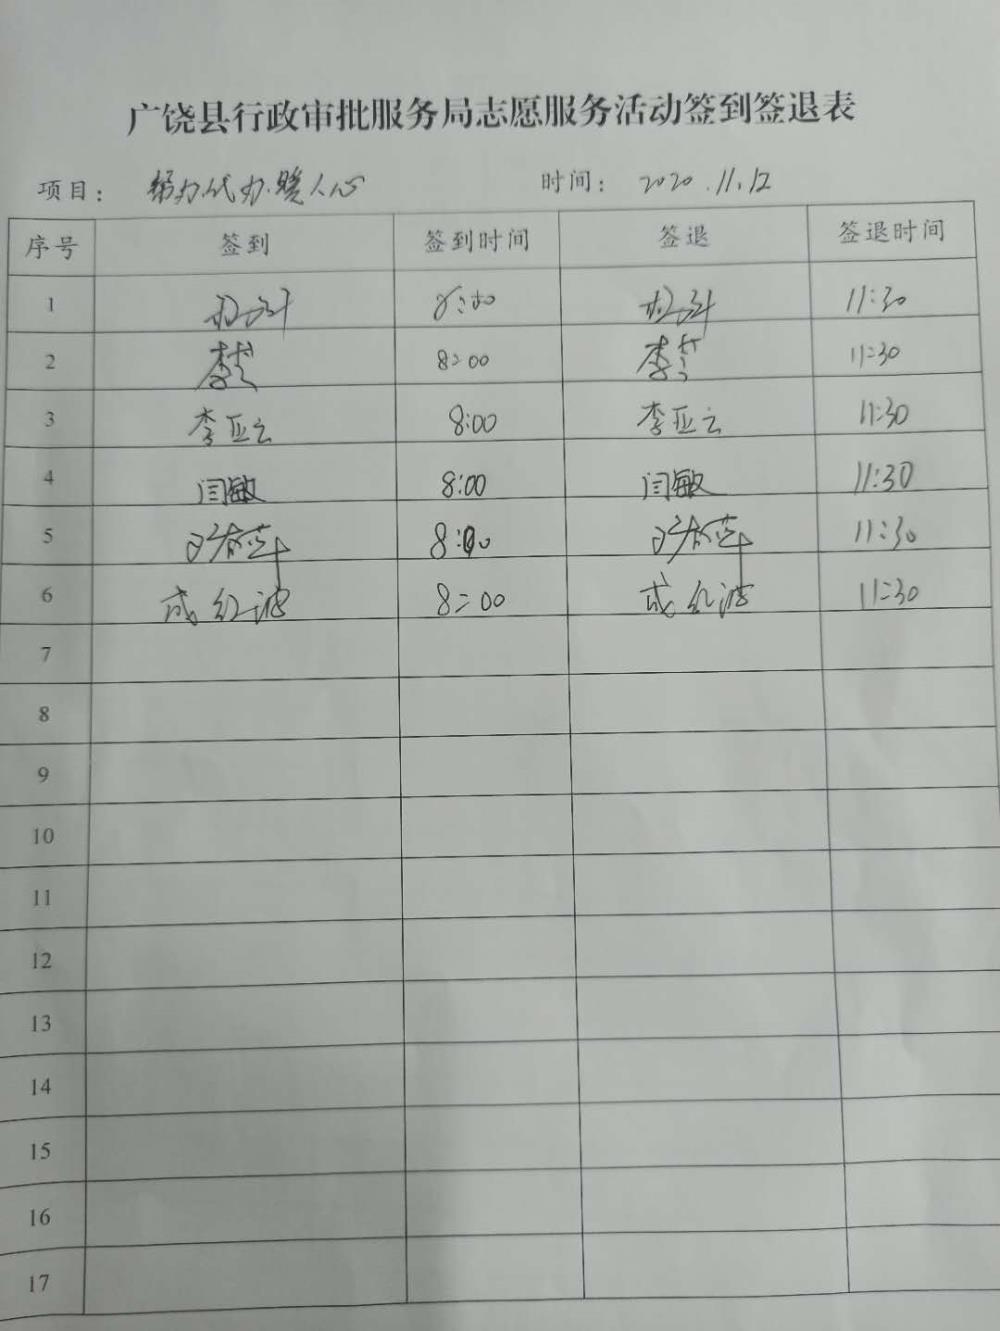 广饶县行政审批服务局志愿服务活动签到签退表
项目: 帮办代办.暖人心 时间: 2020.11.12
序号 签到 签到时间 签退 签退时间
1 8:00 11:30
2 李 8:00 李 11:30
3 李亚云 8:00 李亚云 11:30
4 闫敏 8:00 闫敏 11:30
5 8:00 11:30
6 成红波 8:00 成红波 11:30
7
8
9
10
11
12
13
14
15
16
17